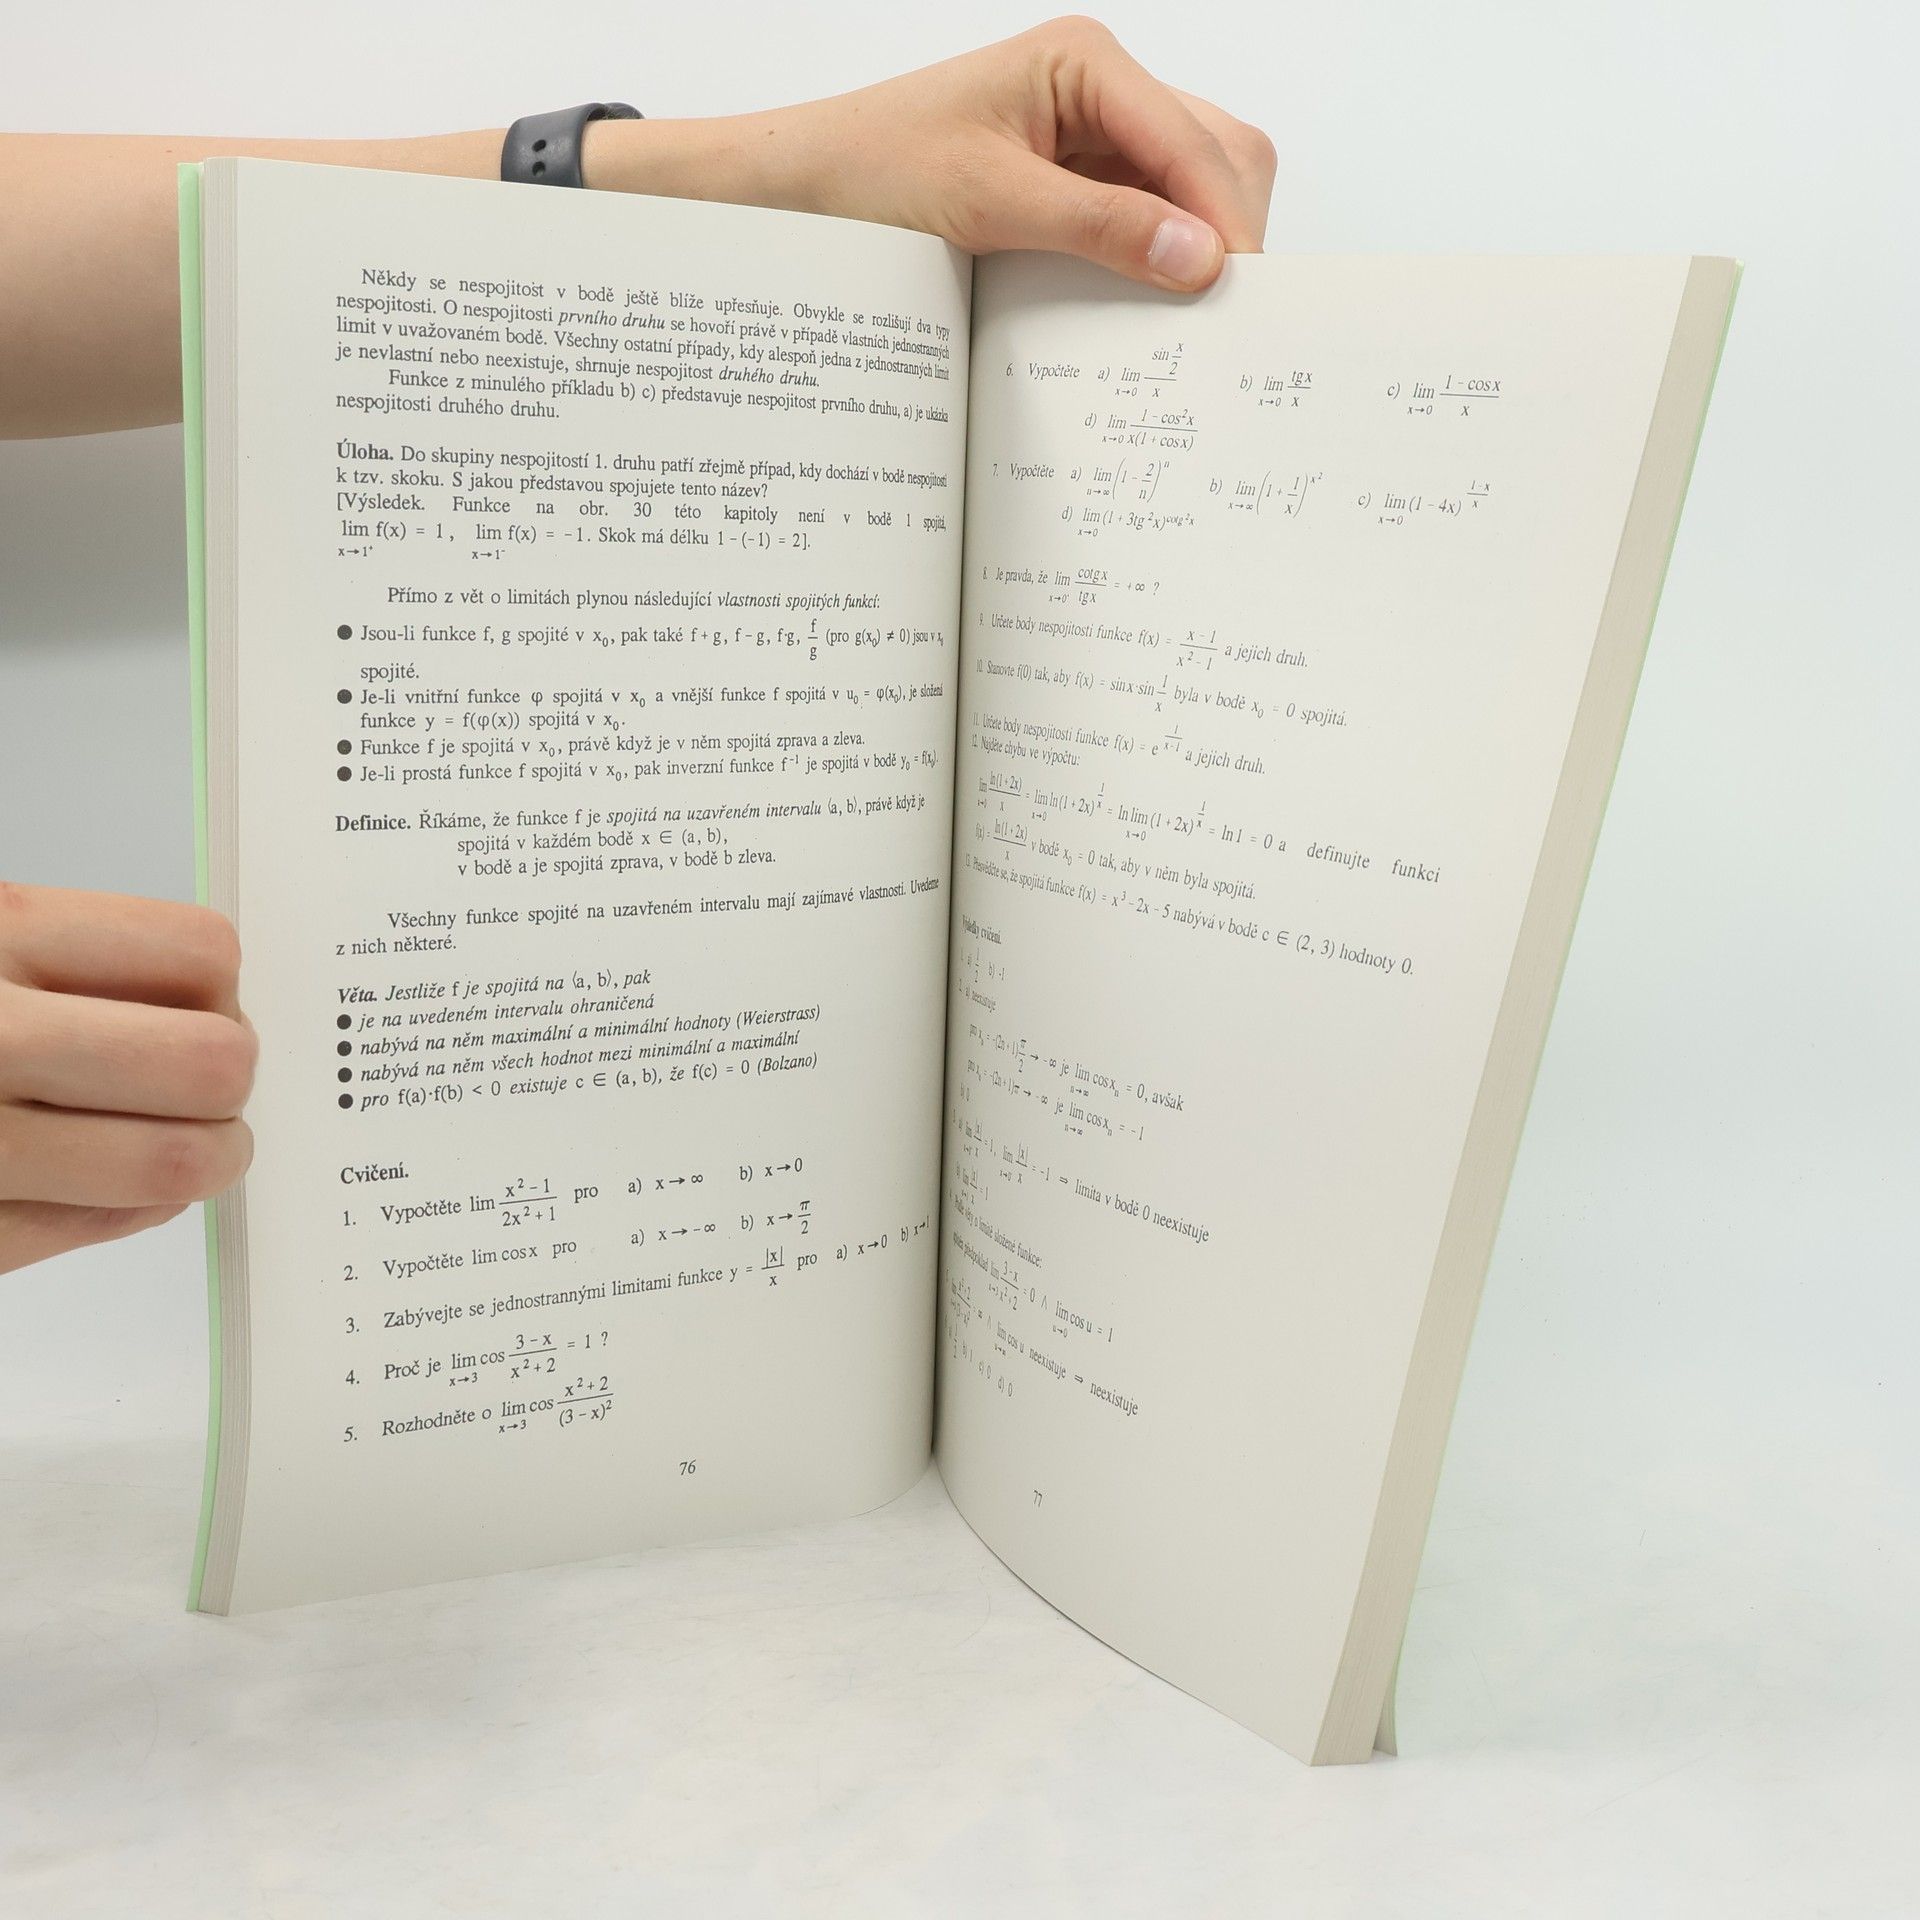 Někdy se nespojitost v bodě ještě blíže upřesňuje. Obvykle se rozlišují dva typy
nespojitosti. O nespojitosti prvního druhu se hovoří právě v případě vlastních jednostranných
limit v uvažovaném bodě. Všechny ostatní případy, kdy alespoň jedna z jednostranných limit
je nevlastní nebo neexistuje, shrnuje nespojitost druhého druhu.
Funkce z minulého příkladu b) c) představuje nespojitost prvního druhu, a) je ukázka
nespojitosti druhého druhu.
Úloha. Do skupiny nespojitostí 1. druhu patří zřejmě případ, kdy dochází v bodě nespojitosti
k tzv. skoku. S jakou představou spojujete tento název?
[Výsledek. Funkce na obr. 30 této kapitoly není v bodě 1 spojitá,
lim_{x→1⁺} f(x) = 1, lim_{x→1⁻} f(x) = -1. Skok má délku 1-(-1) = 2].
Přímo z vět o limitách plynou následující vlastnosti spojitých funkcí:
● Jsou-li funkce f, g spojité v x₀, pak také f+g, f-g, f·g, f/g (pro g(x₀) ≠ 0) jsou v x₀
spojité.
● Je-li vnitřní funkce φ spojitá v x₀ a vnější funkce f spojitá v u₀ = φ(x₀), je složená
funkce y = f(φ(x)) spojitá v x₀.
● Funkce f je spojitá v x₀, právě když je v něm spojitá zprava a zleva.
● Je-li prostá funkce f spojitá v x₀, pak inverzní funkce f⁻¹ je spojitá v bodě y₀ = f(x₀).
Definice. Říkáme, že funkce f je spojitá na uzavřeném intervalu ⟨a, b⟩, právě když je
spojitá v každém bodě x ∈ (a, b),
v bodě a je spojitá zprava, v bodě b zleva.
Všechny funkce spojité na uzavřeném intervalu mají zajímavé vlastnosti. Uvedeme
z nich některé.
Věta. Jestliže f je spojitá na ⟨a, b⟩, pak
● je na uvedeném intervalu ohraničená
● nabývá na něm maximální a minimální hodnoty (Weierstrass)
● nabývá na něm všech hodnot mezi minimální a maximální
● pro f(a)·f(b) < 0 existuje c ∈ (a, b), že f(c) = 0 (Bolzano)
Cvičení.
1. Vypočtěte lim (x²-1)/(2x²+1) pro a) x→∞ b) x→0
2. Vypočtěte lim cosx pro a) x→-∞ b) x→π/2
3. Zabývejte se jednostrannými limitami funkce y = |x|/x pro a) x→0 b) x→1
4. Proč je lim_{x→3} cos (3-x)/(x²+2) = 1 ?
5. Rozhodněte o lim_{x→3} cos (x²+2)/(3-x)²
76
6. Vypočtěte a) lim_{x→0} (sin x/2)/x b) lim_{x→0} tgx/x c) lim_{x→0} (1-cosx)/x
d) lim_{x→0} (1-cos²x)/(x(1+cosx))
7. Vypočtěte a) lim_{n→∞} (1-2/n)ⁿ b) lim_{x→∞} (1+1/x)^{x²} c) lim_{x→0} (1-4x)^{(1-x)/x}
d) lim_{x→0} (1+3tg²x)^{cotg²x}
8. Je pravda, že lim_{x→0⁺} cotgx/tgx = +∞ ?
9. Určete body nespojitosti funkce f(x) = (x-1)/(x²-1) a jejich druh.
10. Stanovte f(0) tak, aby f(x) = sinx·sin 1/x byla v bodě x₀ = 0 spojitá.
11. Určete body nespojitosti funkce f(x) = e^{1/(x-1)} a jejich druh.
12. Najděte chybu ve výpočtu:
lim_{x→0} ln(1+2x)/x = lim_{x→0} ln(1+2x)^{1/x} = ln lim_{x→0} (1+2x)^{1/x} = ln1 = 0 a definujte funkci
f(x) = ln(1+2x)/x v bodě x₀ = 0 tak, aby v něm byla spojitá.
13. Přesvědčte se, že spojitá funkce f(x) = x³-2x-5 nabývá v bodě c ∈ (2, 3) hodnoty 0.
Výsledky cvičení.
1. a) 1/2 b) -1
2. a) neexistuje
pro xₙ = -(2n+1)π/2 → -∞ je lim_{n→∞} cosxₙ = 0, avšak
pro xₙ = -(2n+1)π → -∞ je lim_{n→∞} cosxₙ = -1
b) 0
3. a) lim |x|/x = 1, lim |x|/x = -1 ⇒ limita v bodě 0 neexistuje
b) lim_{x→1} |x|/x = 1
4. Podle věty o limitě složené funkce:
lim_{x→3} (3-x)/(x²+2) = 0 ∧ lim_{u→0} cosu = 1
5. lim_{x→3} (x²+2)/(3-x)² = ∞ ∧ lim_{u→∞} cosu neexistuje ⇒ neexistuje
6. a) 1/2 b) 1 c) 0 d) 0
77